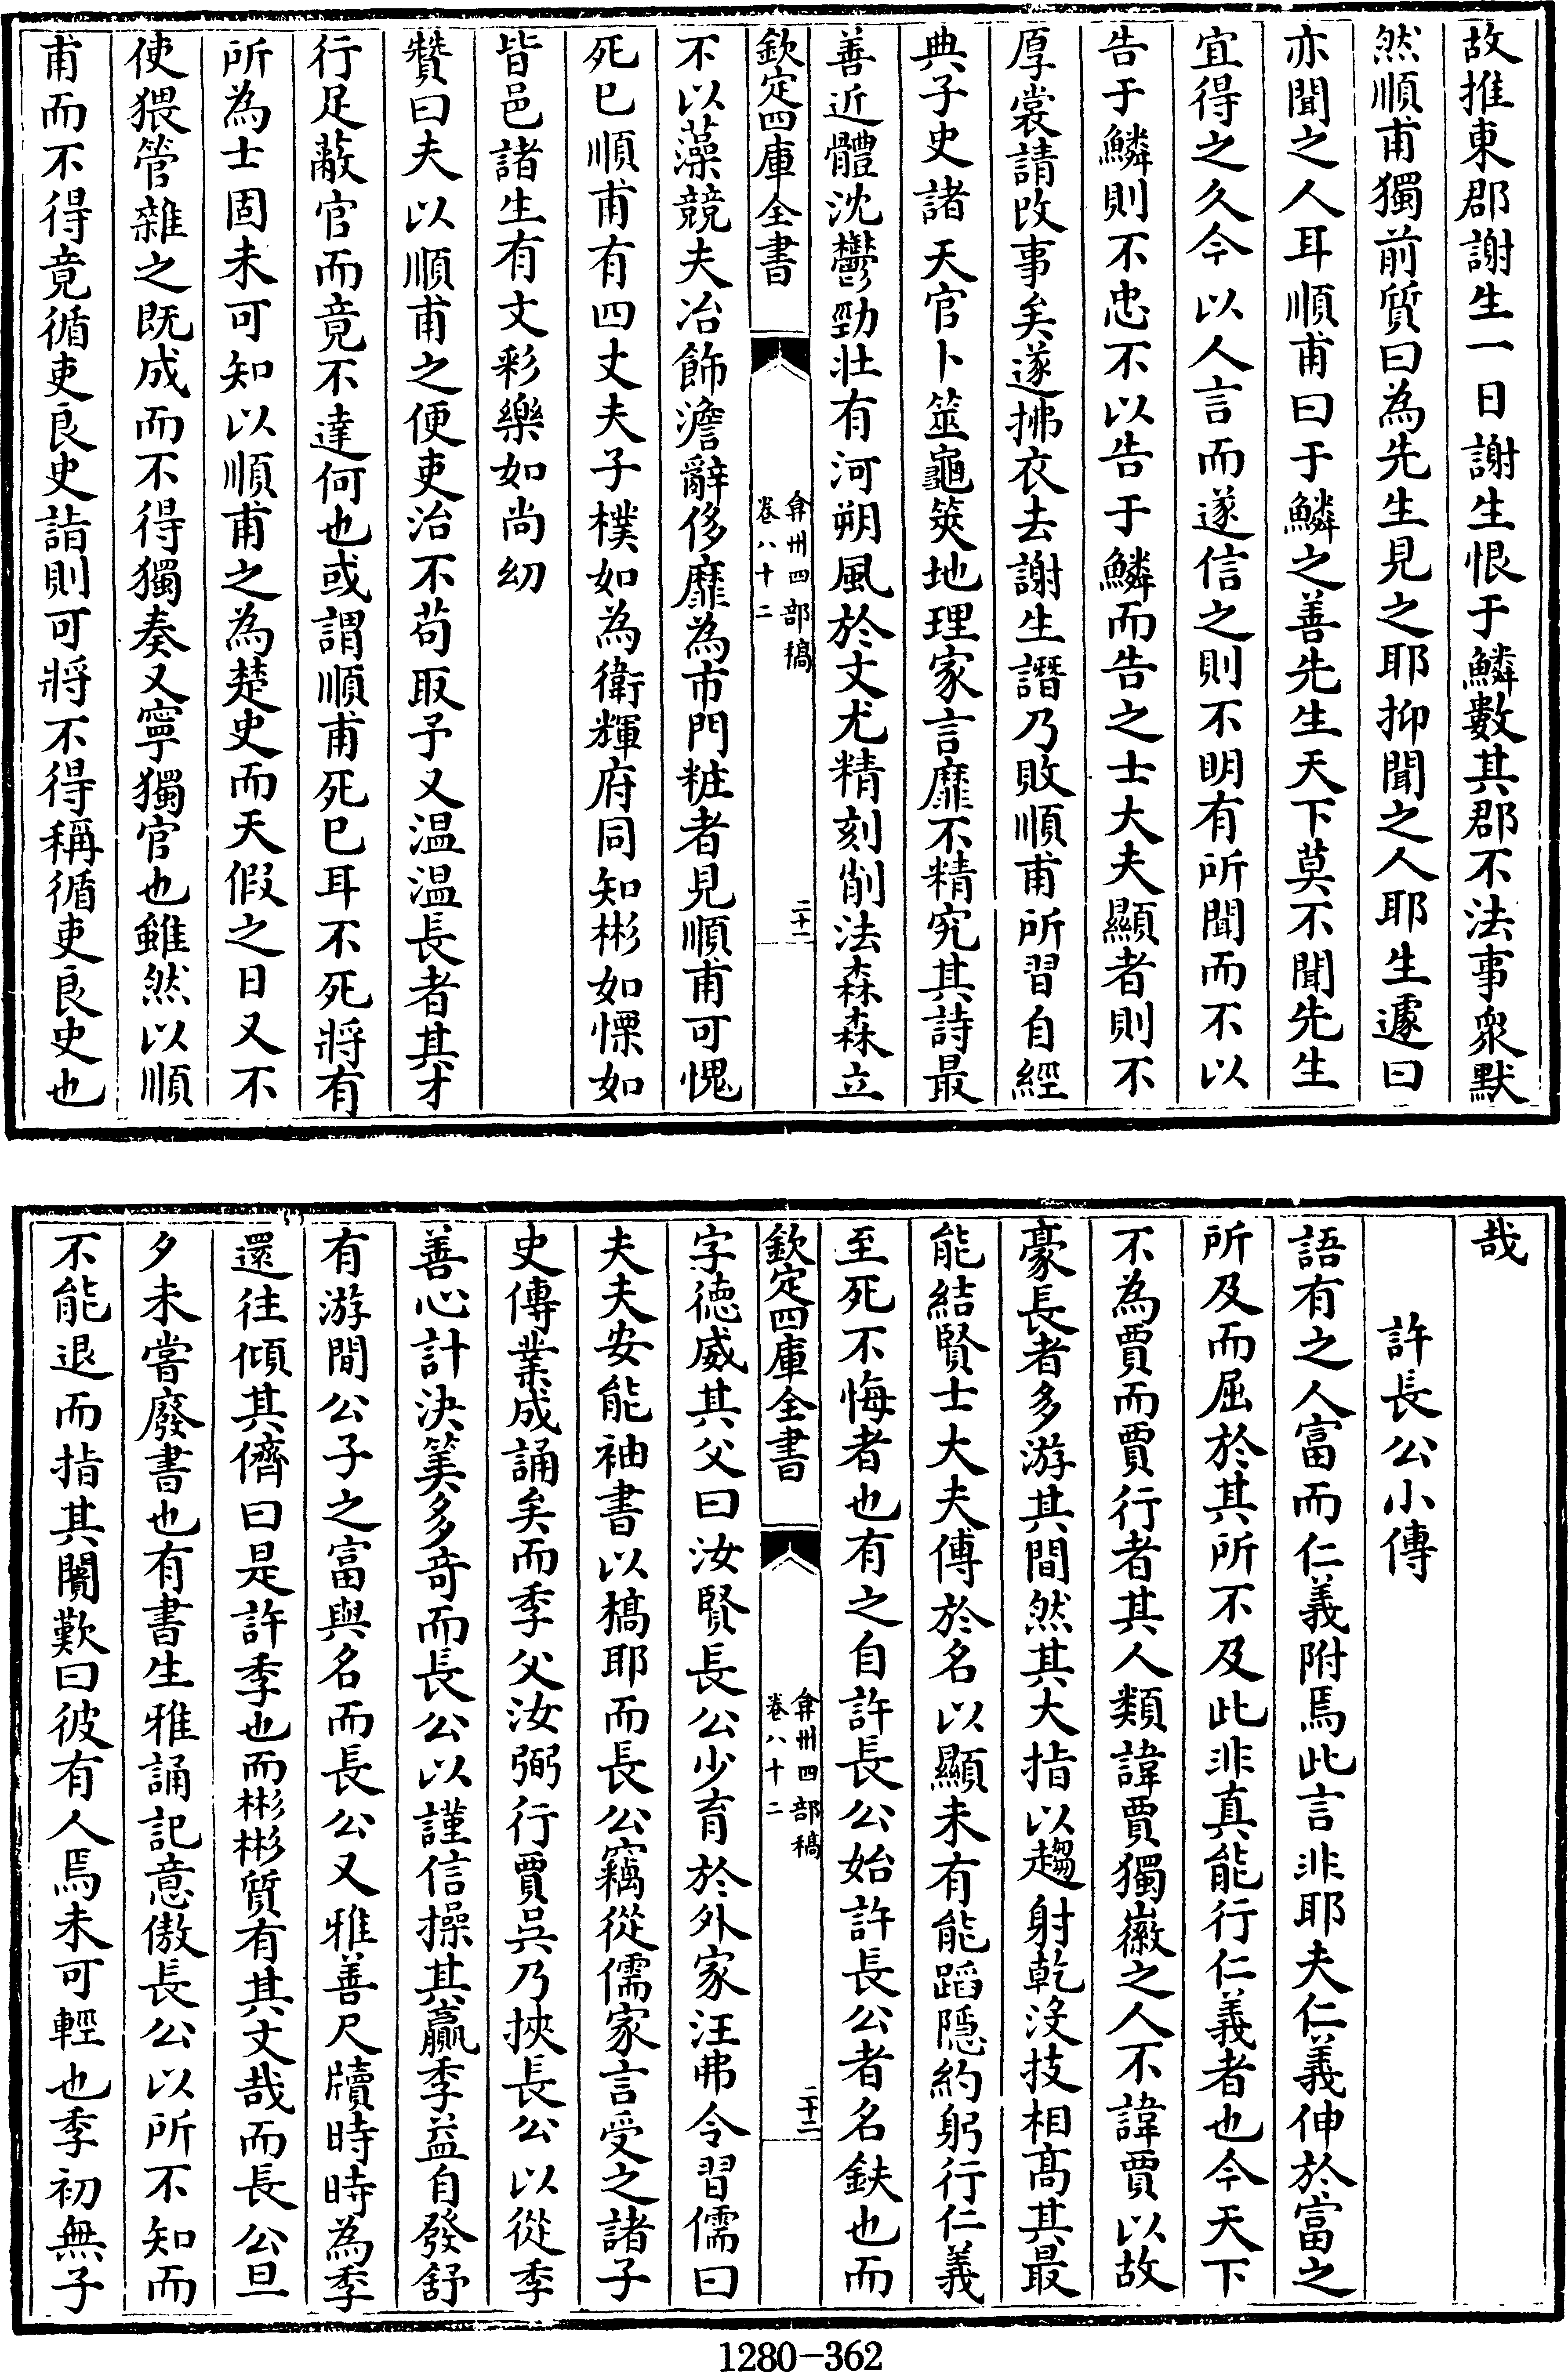 故推東郡謝生一日謝生恨于鱗數其郡不法事衆默
然順甫獨前質曰為先生見之耶抑聞之人耶生遽曰
亦聞之人耳順甫曰于鱗之善先生天下莫不聞先生
宜得之久今以人言而遂信之則不明有所聞而不以
告于鱗則不忠不以告于鱗而告之士大夫顯者則不
厚裳請改事矣遂拂衣去謝生譖乃敗順甫所習自經
典子史諸天官卜筮龜筴地理家言靡不精究其詩最
善近體沈鬱勁壯有河朔風於文尤精刻削法森森立
欽定四庫全書
弇州四部稿
卷八十二
二十一
不以藻競夫冶飾澹辭侈靡為市門粧者見順甫可愧
死已順甫有四丈夫子樸如為衛輝府同知彬如慄如
皆邑諸生有文彩樂如尚幼
贊曰夫以順甫之便吏治不苟取予又温温長者其才
行足蔽官而竟不達何也或謂順甫死已耳不死將有
所為士固未可知以順甫之為楚史而天假之日又不
使猥管雜之既成而不得獨奏又寧獨官也雖然以順
甫而不得竟循吏良史詣則可將不得稱循吏良史也
哉
許長公小傳
語有之人富而仁義附焉此言非耶夫仁義伸於富之
所及而屈於其所不及此非真能行仁義者也今天下
不為賈而賈行者其人類諱賈獨徽之人不諱賈以故
豪長者多游其間然其大指以趨射乾沒技相高其最
能結賢士大夫傅於名以顯未有能蹈隱約躬行仁義
至死不悔者也有之自許長公始許長公者名鈇也而
欽定四庫全書
弇州四部稿
卷八十二
二十二
字德威其父曰汝賢長公少育於外家汪弗令習儒曰
夫夫安能袖書以槁耶而長公竊從儒家言受之諸子
史傳業成誦矣而季父汝弼行賈吳乃挾長公以從季
善心計決筭多奇而長公以謹信操其贏季益自發舒
有游閒公子之富與名而長公又雅善尺牘時時為季
還往傾其儕曰是許季也而彬彬質有其文哉而長公旦
夕未嘗廢書也有書生雅誦記意傲長公以所不知而
不能退而指其闠歎曰彼有人焉未可輕也季初無子
1280-362